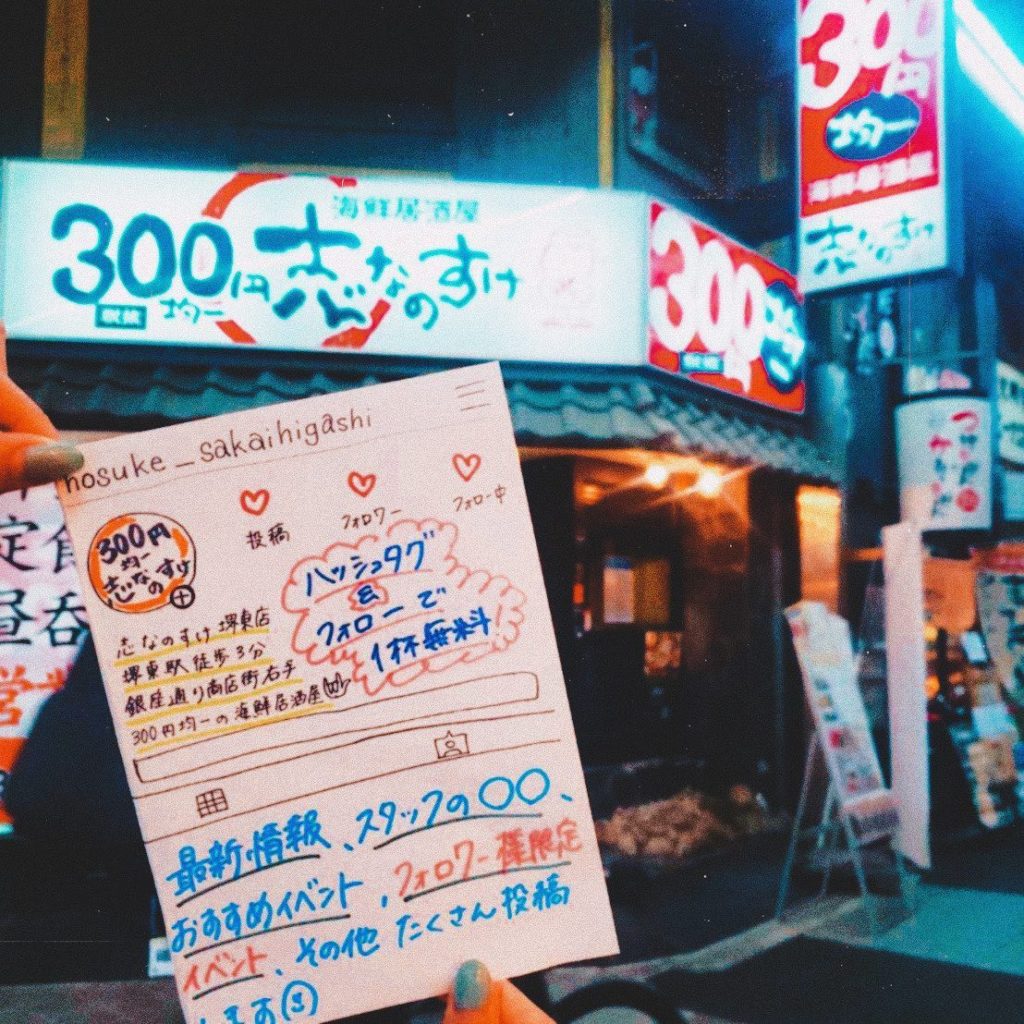 300円
均一
海鮮居酒屋
志なのすけ
海鮮居酒屋
300円 志なのすけ
均一
300
hosuke_sakaihigashi
投稿
フォロワー
フォロー中
300円
均一
志なのすけ
ハッシュタグ
&
フォローで
1杯無料
志なのすけ 堺東店
堺東駅徒歩3分
銀座通り商店街右手
300円均一の海鮮居酒屋
最新情報、スタッフの〇〇、
おすすめイベント、フォロワー様限定
イベント、その他 たくさん投稿
します
定食
昼呑
営業